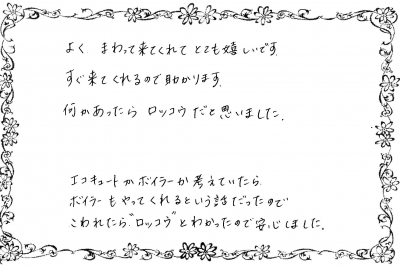 よく まわって来てくれて とても嬉しいです.
すぐ来てくれるので助かります.
何かあったら ロッコウ だと思いました.
エコキュートかボイラーか考えていたら
ボイラーもやってくれるという話だったので
こわれたら"ロッコウ"とわかったので安心しました.